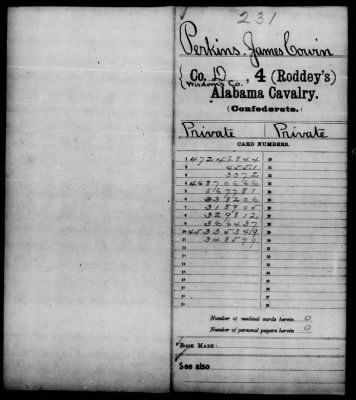 231
Perkins, James Corwin
Co. D, 4 (Roddey's)
Wisdom's Co.
Alabama Cavalry.
(Confederate.)
Private Private
CARD NUMBERS.
1 47242844 18
2 4551 19
3 3372 20
4 46870666 21
5 567781 22
6 338206 23
7 318905 24
8 329812 25
9 366437 26
10 45335349 27
11 348599 28
12
Number of medical cards herein 0
Number of personal papers herein 0
BOOK MARK:
See also